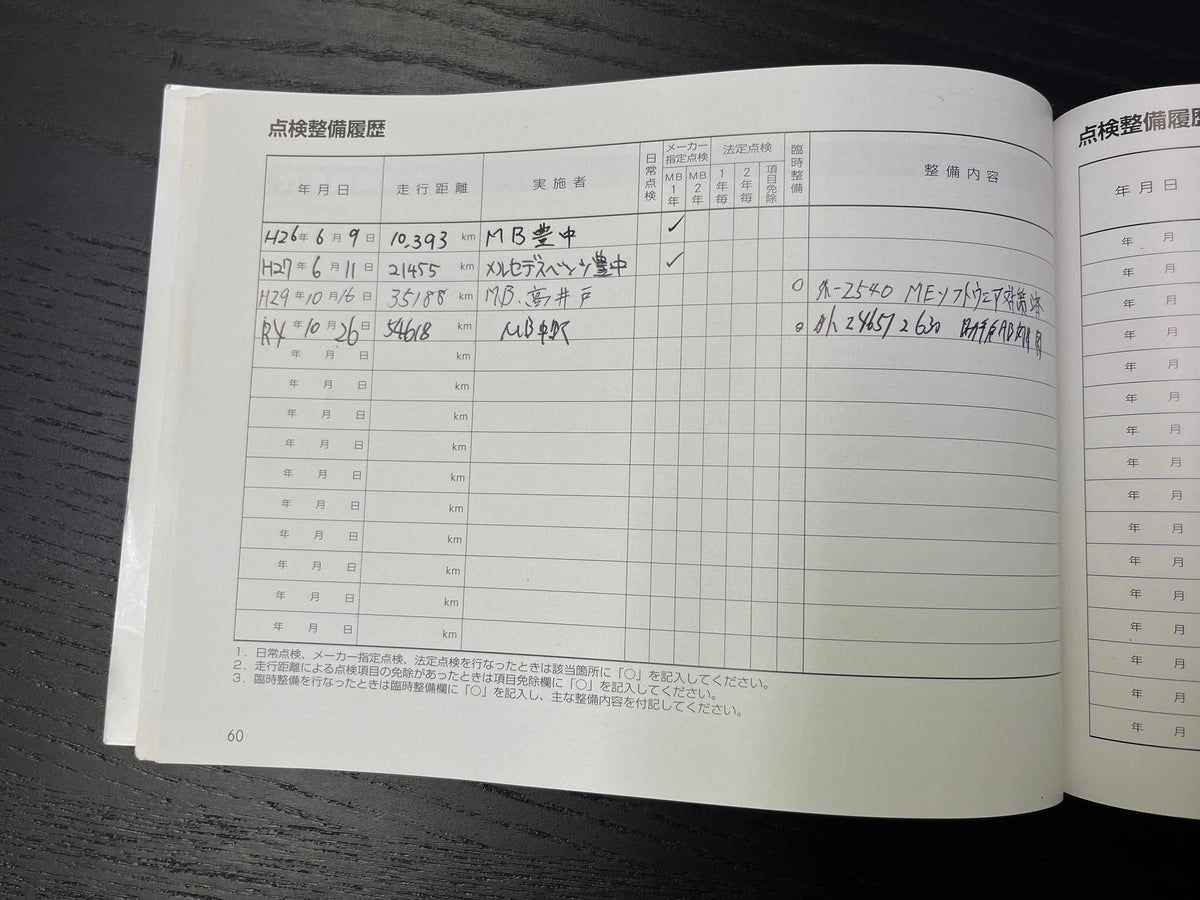 点検整備履歴
年月日 走行距離 実施者 日常点検 メーカー指定点検 MB1年 MB2年 法定点検 1年毎 2年毎 項目免除 臨時整備 整備内容
H26年6月9日 10,393 km MB豊中 ✓
H27年6月11日 21455 km メルセデスベンツ豊中 ✓
H29年10月16日 35188 km M.B.高井戸 ○ 外-2540 MEソフトウェア対策
R4年10月26日 54618 km MB ○ 外 2465/2630 助手席AB
年 月 日 km
年 月 日 km
年 月 日 km
年 月 日 km
年 月 日 km
年 月 日 km
年 月 日 km
年 月 日 km
年 月 日 km
年 月 日 km
1. 日常点検、メーカー指定点検、法定点検を行なったときは該当箇所に「○」を記入してください。
2. 走行距離による点検項目の免除があったときは項目免除欄に「○」を記入してください。
3. 臨時整備を行なったときは臨時整備欄に「○」を記入し、主な整備内容を付記してください。
60
点検整備履歴
年月日
年 月
年 月
年 月
年 月
年 月
年 月
年 月
年 月
年 月
年 月
年 月
年 月
年 月
年 月
年 月
年 月